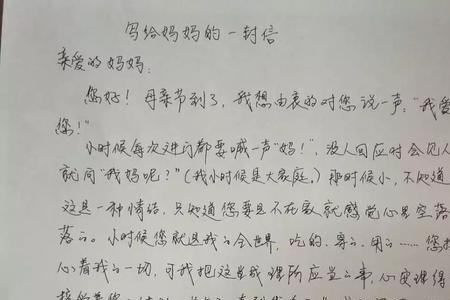 写给妈妈的一封信
亲爱的妈妈:
您好!母亲节到了,我想由衷的对您说一声:"我爱
您!"
小时候每次进门都要喊一声"妈!",没人回应时会见人
就问"我妈呢?"(我小时候是大家庭。)那时候小,不知道
这是一种情结,只知道您要是不在家就感觉心里空落
落的。小时候您就是我的全世界,吃的、穿的、用的……您
心着我的一切,可我把这是我理所应当的事,心安理得